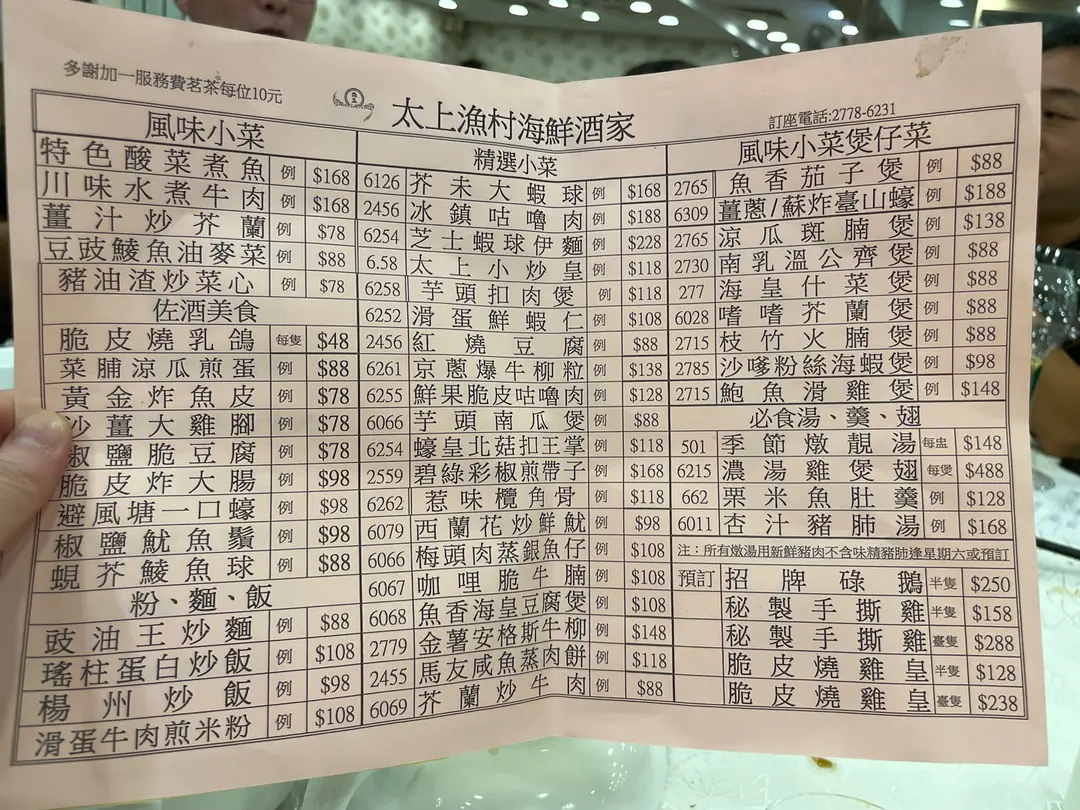 多謝加一服務費茗茶每位10元
太上漁村海鮮酒家
訂座電話:2778-6231
風味小菜
特色酸菜煮魚 例 $168
川味水煮牛肉 例 $168
薑汁炒芥蘭 例 $78
豆豉鯪魚油麥菜 例 $88
豬油渣炒菜心 例 $78
佐酒美食
脆皮燒乳鴿 每隻 $48
菜脯涼瓜煎蛋 例 $88
黃金炸魚皮 例 $78
沙薑大雞腳 例 $78
椒鹽脆豆腐 例 $78
脆皮炸大腸 例 $98
避風塘一口蠔 例 $98
椒鹽魷魚鬚 例 $98
蜆芥鯪魚球 例 $88
粉、麵、飯
豉油王炒麵 例 $88
瑤柱蛋白炒飯 例 $108
楊州炒飯 例 $98
滑蛋牛肉煎米粉 例 $108
精選小菜
6126 芥未大蝦球 例 $168
2456 冰鎮咕嚕肉 例 $188
6254 芝士蝦球伊麵 例 $228
6.58 太上小炒皇 例 $118
6258 芋頭扣肉煲 例 $118
6252 滑蛋鮮蝦仁 例 $108
2456 紅燒豆腐 例 $88
6261 京蔥爆牛柳粒 例 $138
6255 鮮果脆皮咕嚕肉 例 $128
6066 芋頭南瓜煲 例 $88
6254 蠔皇北菇扣王掌 例 $118
2559 碧綠彩椒煎帶子 例 $168
6262 惹味欖角骨 例 $118
6079 西蘭花炒鮮魷 例 $98
6066 梅頭肉蒸銀魚仔 例 $108
6067 咖哩脆牛腩 例 $108
6068 魚香海皇豆腐煲 例 $108
2779 金薯安格斯牛柳 例 $148
2455 馬友咸魚蒸肉餅 例 $118
6069 芥蘭炒牛肉 例 $88
風味小菜煲仔菜
2765 魚香茄子煲 例 $88
6309 薑蔥/蘇炸臺山蠔 例 $188
2765 涼瓜斑腩煲 例 $138
2730 南乳溫公齊煲 例 $88
277 海皇什菜煲 例 $88
6028 嗜嗜芥蘭煲 例 $88
2715 枝竹火腩煲 例 $88
2785 沙嗲粉絲海蝦煲 例 $98
2715 鮑魚滑雞煲 例 $148
必食湯、羹、翅
501 季節燉靚湯 每盅 $148
6215 濃湯雞煲翅 每煲 $488
662 粟米魚肚羹 例 $128
6011 杏汁豬肺湯 例 $168
注：所有燉湯用新鮮豬肉不含味精豬肺逢星期六或預訂
預訂 招牌碌鵝 半隻 $250
秘製手撕雞 半隻 $158
秘製手撕雞 臺隻 $288
脆皮燒雞皇 半隻 $128
脆皮燒雞皇 臺隻 $238